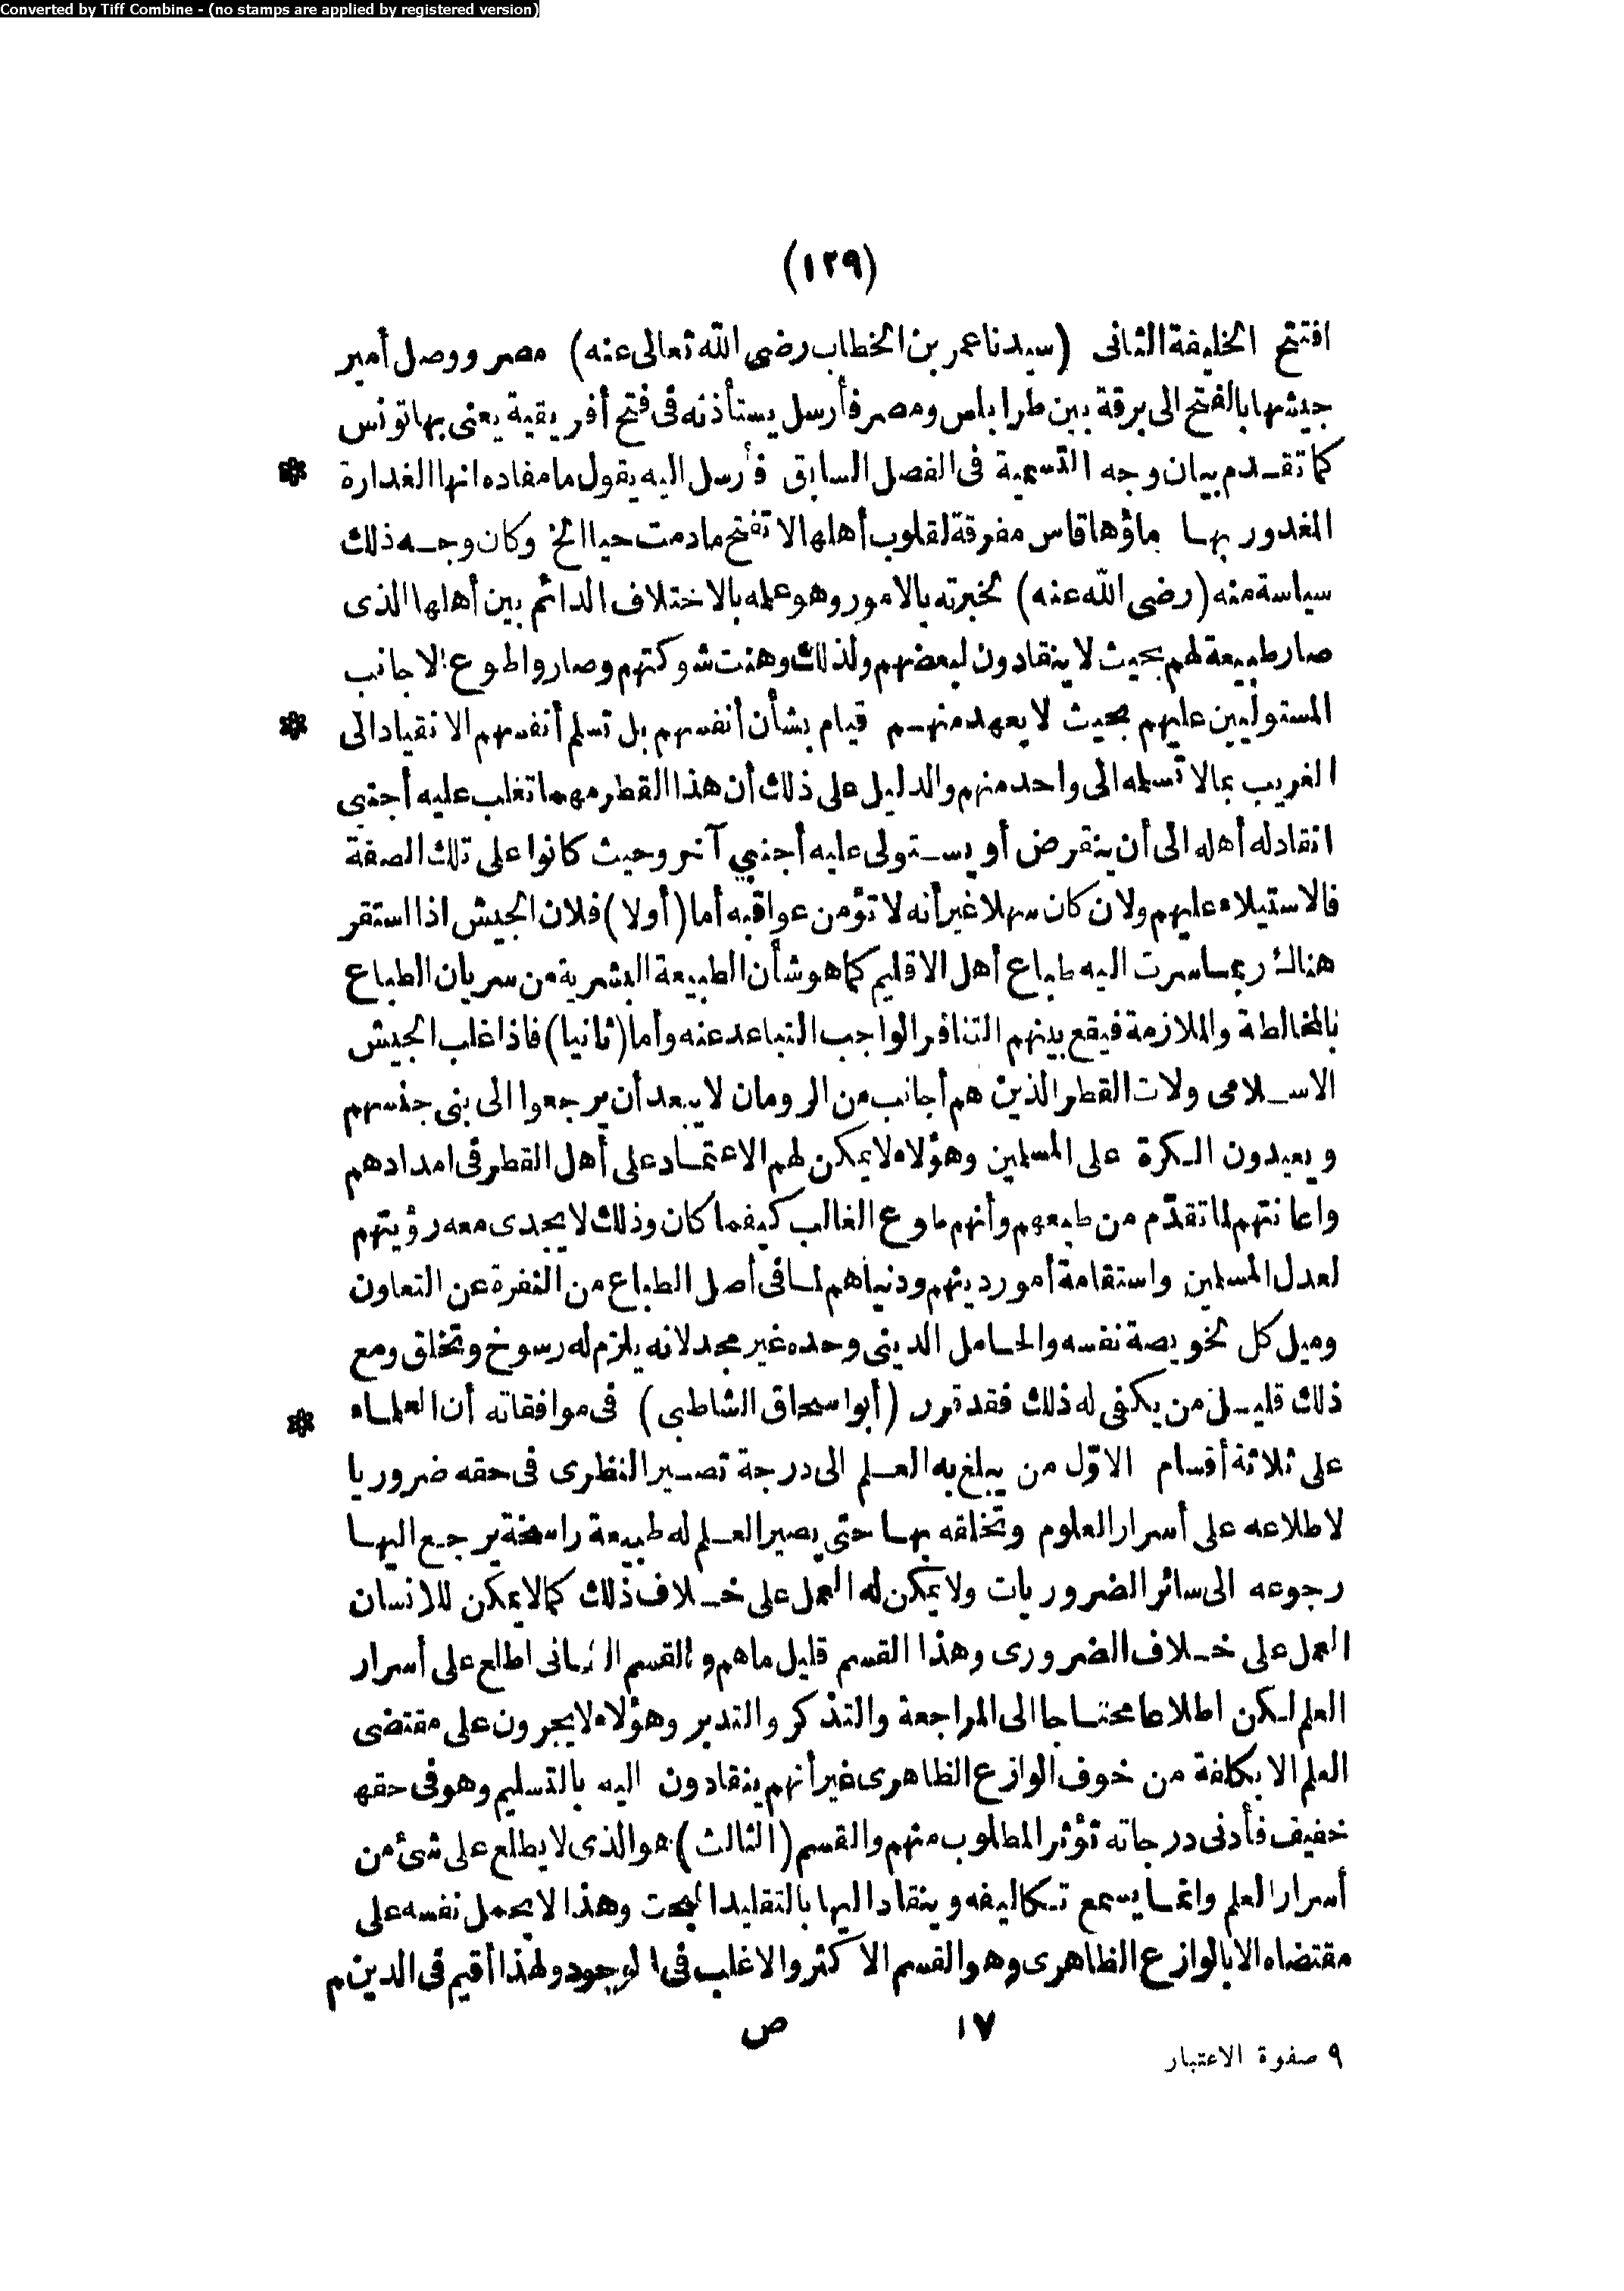 Converted by Tiff Combine - (no stamps are applied by registered version)
(١٢٩)
افتتح الخليفة الثانى (سيدنا عمر بن الخطاب رضى الله تعالى عنه) مصر ووصل أمير
جيشها بالفتح الى برقة بين طرابلس ومصر فأرسل يستأذنه فى فتح أفريقية يعنى بها تونس
كما تقدم بيان وجه التسمية فى الفصل السابق فأرسل اليه يقول ما مفاده انها الغدارة *
المغدور بها ماؤها قاس مفرقة لقلوب أهلها لا تفتح ما دمت حيا الخ وكان وجه ذلك
سياسة منه (رضى الله عنه) لخبرته بالامور وهو علمه بالاختلاف الدائم بين أهلها الذى
صار طبيعة لهم بحيث لا ينقادون لبعضهم ولذلك وهنت شوكتهم وصاروا طوع الاجانب
المستوليين عليهم بحيث لا يعهد منهم قيام بشأن أنفسهم بل تسلم أنفسهم الانقياد الى *
الغريب بما لا تسلمه الى واحد منهم والدليل على ذلك أن هذا القطر مهما تغلب عليه أجنبى
انقاد له أهله الى أن ينقرض أو يستولى عليه أجنبي آخر وحيث كانوا على تلك الصفة
فالاستيلاء عليهم ولان كان سهلا غير أنه لا تؤمن عواقبه أما (أولا) فلان الجيش اذا استقر
هناك ربما سرت اليه طباع أهل الاقليم كما هو شأن الطبيعة البشرية من سريان الطباع
بالمخالطة والملازمة فيقع بينهم التنافر الواجب التباعد عنه وأما (ثانيا) فاذا غلب الجيش
الاسلامى ولات القطر الذين هم أجانب من الرومان لا يبعد أن يرجعوا الى بنى جنسهم
ويعيدون الكرة على المسلمين وهؤلاء لا يمكن لهم الاعتماد على أهل القطر فى امدادهم
واعانتهم لما تقدّم من طبعهم وأنهم طوع الغالب كيفما كان وذلك لا يجدى معه رؤيتهم
لعدل المسلمين واستقامة أمور دينهم ودنياهم لما فى أصل الطباع من النفرة عن التعاون
وميل كل لخويصة نفسه والحامل الدينى وحده غير مجد لانه يلزم له رسوخ وتخلق ومع
ذلك قليل من يكفى له ذلك فقد قرر (أبو اسحاق الشاطبى) فى موافقاته أن العلماء *
على ثلاثة أقسام الاوّل من يبلغ به العلم الى درجة تصير النظرى فى حقه ضروريا
لاطلاعه على أسرار العلوم وتخلقه بها حتى يصير العلم له طبيعة راسخة يرجع اليها
رجوعه الى سائر الضروريات ولا يمكن له العمل على خلاف ذلك كما لا يمكن للانسان
العمل على خلاف الضرورى وهذا القسم قليل ما هم والقسم الثانى اطلع على أسرار
العلم لكن اطلاعا محتاجا الى المراجعة والتذكر والتدبر وهؤلاء لا يجرون على مقتضى
العلم الا بكلفة من خوف الوازع الظاهرى غير أنهم ينقادون اليه بالتسليم وهو فى حقه
خفيف فأدنى درجاته تؤثر المطلوب منهم والقسم (الثالث) هو الذى لا يطلع على شئ من
أسرار العلم وانما يسمع تكاليفه وينقاد اليها بالتقليد البحت وهذا لا يحمل نفسه على
مقتضاه الا بالوازع الظاهرى وهو القسم الاكثر والاغلب فى الوجود ولهذا أقيم فى الدين م
١٧ ص
٩ صفوة الاعتبار